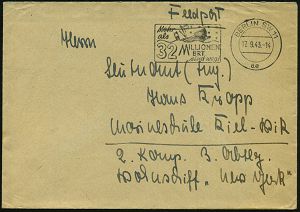 Feldpost
Mehr
als
32 MILLIONEN
BRT
BERLIN SW 11
12.9.43.-14
Herrn
Leutnant (Ing.)
Hans Kropp
Marineschule Kiel-Wik
2. Komp. 3. Abtlg.
Wohnschiff „New York"